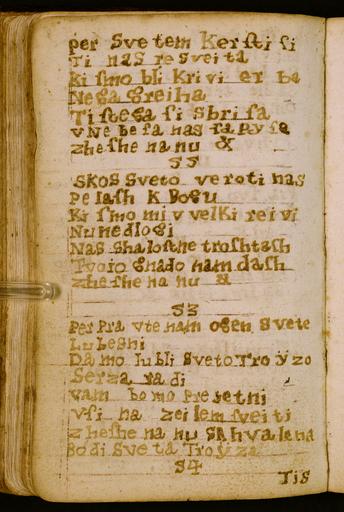 per Sve tem Kerſti ſi
Ti nas re Sveita
Ki ſmo bli Krivi er ba
Nega Greiha
Ti ſtega ſi Sbriſa
v Ne be ſa nas
zheſhe na nu &
SKOS Sveto ve roti nas
Pelaſh K Bogu
Ki ſmo mi v velKi rei vi
Nu nedlogi
Nas Shaloſtne troſhtaſh
Tvoio Gnado nam daſh
zheſhe na nu &
53
Per Pra vte nam ogen Svete
Lubesni
Da mo lubli Sveto Troyzo
Serza ra di
vam bo mo Pre ſetni
vſi na zeilem ſveiti
zheſhe na nu SAhvalena
Bodi Sve ta Troyza
54
Tis